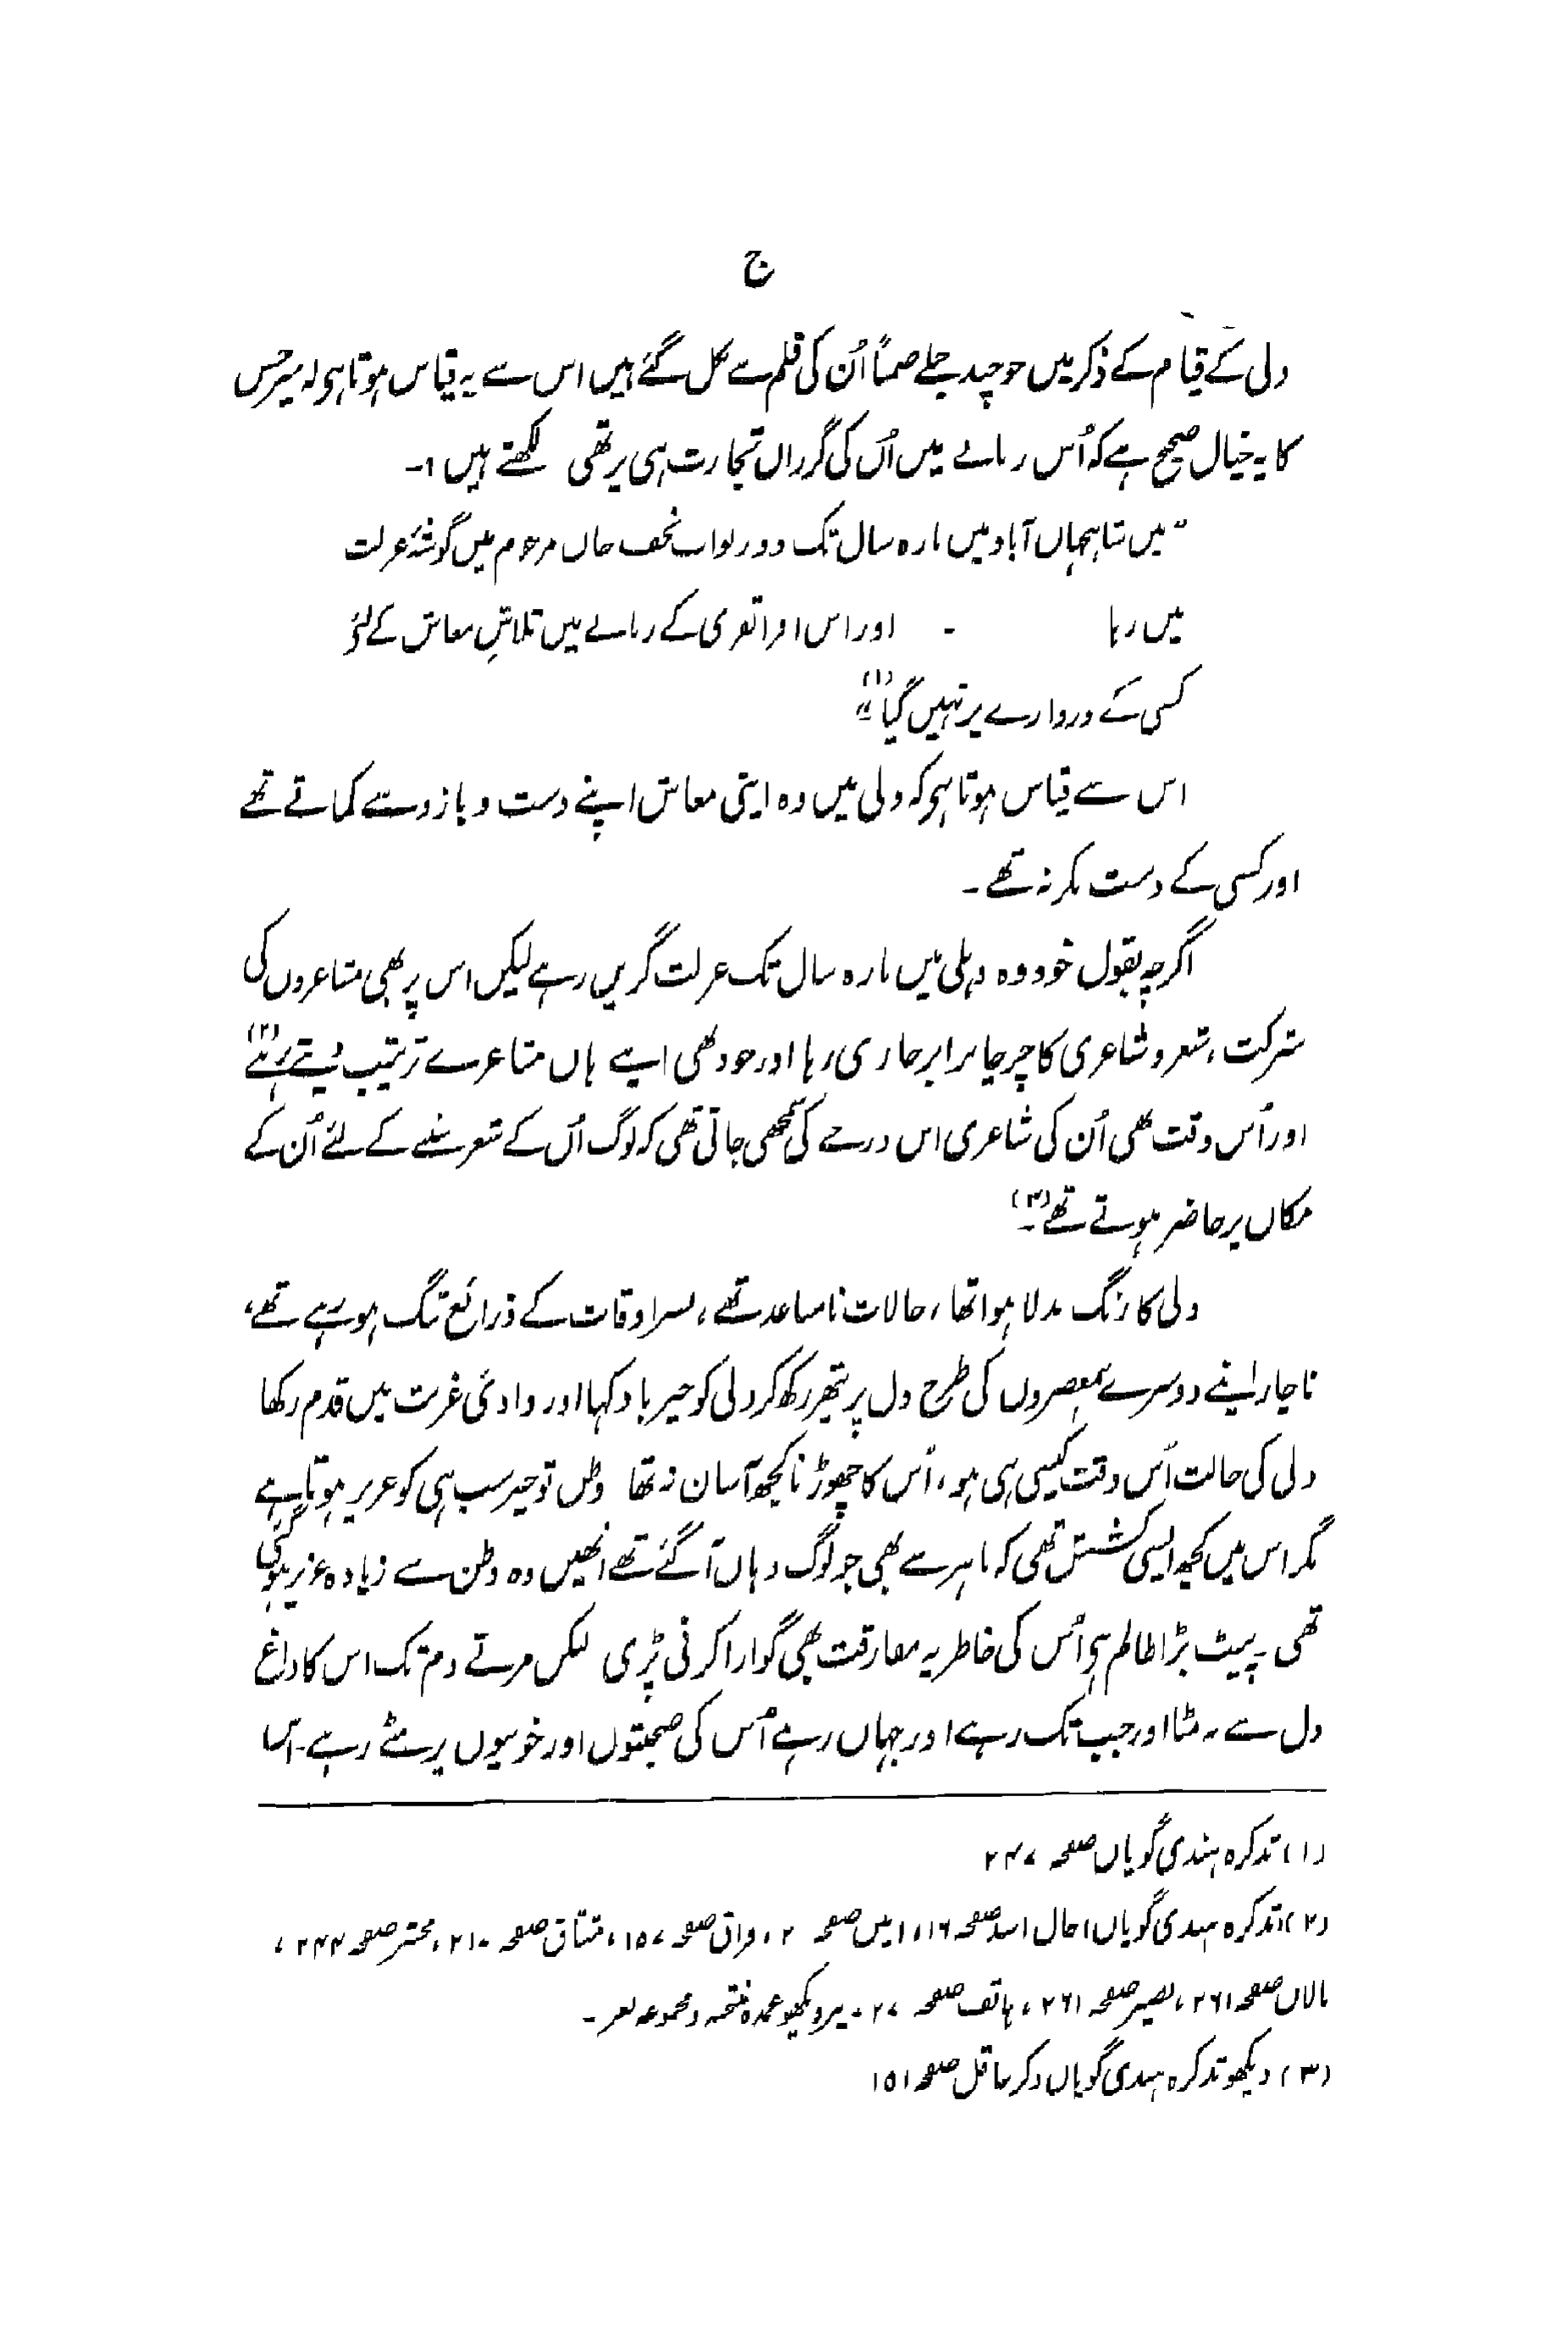 ج
دلی کے قیام کے ذکر میں جو چند جملے ضمناً اُن کی قلم سے نکل گئے ہیں اس سے یہ قیاس ہوتا ہی کہ میر حسن
کا یہ خیال صحیح ہے کہ اُس زمانے میں اُن کی گزران تجارت ہی پر تھی لکھتے ہیں :-
"میں شاہجہاں آباد میں بارہ سال تک دور نواب نجف خاں مرحوم میں گوشۂ عزلت
میں رہا - اور اس افراتفری کے زمانے میں تلاشِ معاش کے لئے
کسی کے دروازے پر نہیں گیا (۱)"
اس سے قیاس ہوتا ہی کہ دلی میں وہ اپنی معاش اپنے دست و بازو سے کماتے تھے
اور کسی کے دست نگر نہ تھے -
اگرچہ بقول خود وہ دہلی میں بارہ سال تک عزلت گزیں رہے لیکن اس پر بھی مشاعروں کی
شرکت، شعر و شاعری کا چرچا برابر جاری رہا اور خود بھی اپنے ہاں مشاعرے ترتیب دیتے رہے (۲)
اور اُس وقت بھی اُن کی شاعری اس درجے کی سمجھی جاتی تھی کہ لوگ اُن کے شعر سننے کے لئے اُن کے
مکان پر حاضر ہوتے تھے (۳)-
دلی کا رنگ بدلا ہوا تھا، حالات نامساعد تھے، بسر اوقات کے ذرائع تنگ ہو رہے تھے،
ناچار اپنے دوسرے ہمعصروں کی طرح دل پر پتھر رکھ کر دلی کو خیر باد کہا اور وادئی غربت میں قدم رکھا
دلی کی حالت اُس وقت کیسی ہی ہو، اُس کا چھوڑنا کچھ آسان نہ تھا وطن تو خیر سب ہی کو عزیز ہوتا ہے
مگر اس میں کچھ ایسی کشش تھی کہ باہر سے بھی جو لوگ وہاں آ گئے تھے انھیں وہ وطن سے زیادہ عزیز ہو گئی
تھی - پیٹ بڑا ظالم ہی اُس کی خاطر یہ مفارقت بھی گوارا کرنی پڑی لیکن مرتے دم تک اس کا داغ
دل سے نہ مٹا اور جب تک رہے اور جہاں رہے اُس کی صحبتوں اور خوبیوں پر مٹے رہے -
(۱) تذکرہ ہندی گویاں صفحہ ۲۴۷
(۲) تذکرہ ہندی گویاں احال اسد صفحہ ۱۶، انیس صفحہ ۲، فراق صفحہ ۱۵۷، مشتاق صفحہ ۲۱۰، محشر صفحہ ۲۴۴،
نالاں صفحہ ۲۶۱، نصیر صفحہ ۲۶۱، ہاتف صفحہ ۲۷۰ - نیز دیکھو عمدہ منتخبہ و مجموعہ نغز -
(۳) دیکھو تذکرہ ہندی گویاں ذکر عاقل صفحہ ۱۵۱